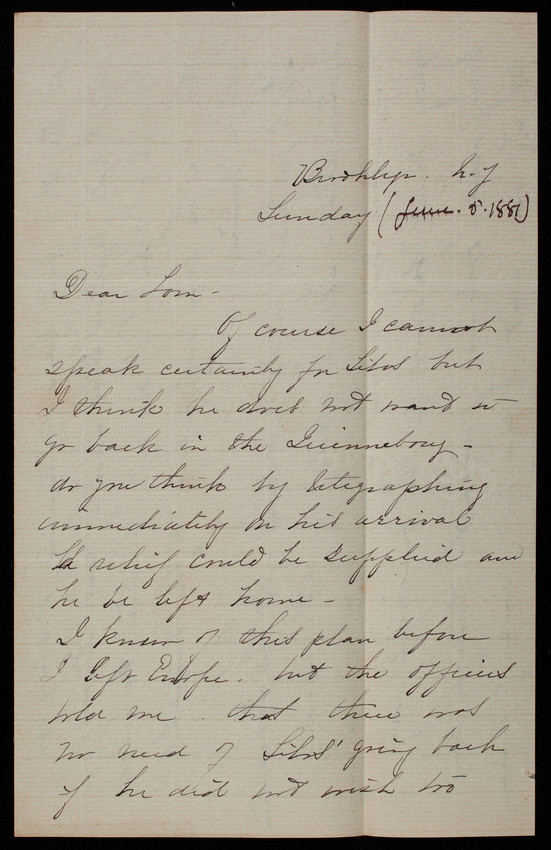 Brooklyn. N.Y
Sunday (June. 5. 1881)
Dear Tom -
Of course I cannot
speak certainly for Silas but
I think he does not want to
go back in the Quinnebaug -
do you think by telegraphing
immediately on his arrival
relief could be supplied and
he be left home -
I knew of this plan before
I left Europe. but the officers
told me. that there was
no need of Silas' going back
if he did not wish too